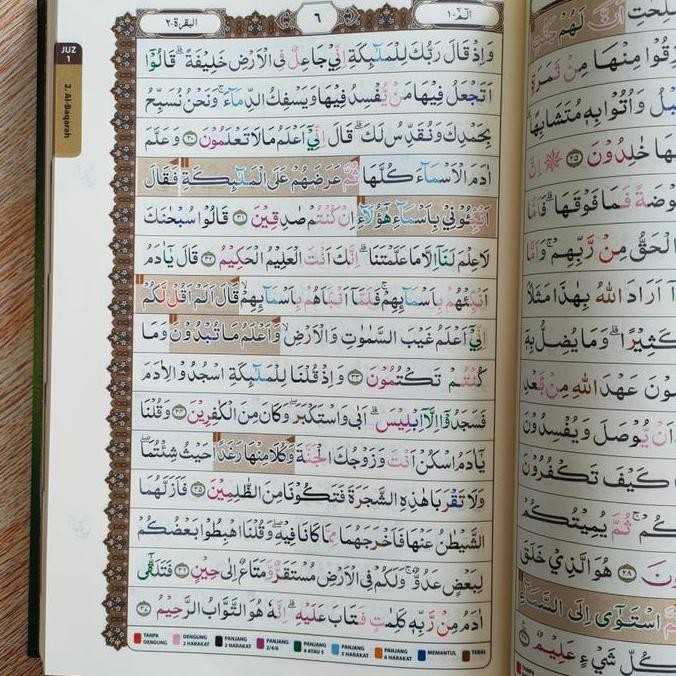 البقرة-٢
٦
الٓمّٓ-١
JUZ 1
2. Al-Baqarah
وَاِذْ قَالَ رَبُّكَ لِلْمَلٰۤىِٕكَةِ اِنِّيْ جَاعِلٌ فِى الْاَرْضِ خَلِيْفَةًۗ قَالُوْٓا
اَتَجْعَلُ فِيْهَا مَنْ يُّفْسِدُ فِيْهَا وَيَسْفِكُ الدِّمَاۤءَۚ وَنَحْنُ نُسَبِّحُ
بِحَمْدِكَ وَنُقَدِّسُ لَكَۗ قَالَ اِنِّيْٓ اَعْلَمُ مَا لَا تَعْلَمُوْنَ ٣٠ وَعَلَّمَ
اٰدَمَ الْاَسْمَاۤءَ كُلَّهَا ثُمَّ عَرَضَهُمْ عَلَى الْمَلٰۤىِٕكَةِ فَقَالَ
اَنْۢبِـُٔوْنِيْ بِاَسْمَاۤءِ هٰٓؤُلَاۤءِ اِنْ كُنْتُمْ صٰدِقِيْنَ ٣١ قَالُوْا سُبْحٰنَكَ
لَا عِلْمَ لَنَآ اِلَّا مَا عَلَّمْتَنَاۗ اِنَّكَ اَنْتَ الْعَلِيْمُ الْحَكِيْمُ ٣٢ قَالَ يٰٓاٰدَمُ
اَنْۢبِئْهُمْ بِاَسْمَاۤىِٕهِمْۚ فَلَمَّآ اَنْۢبَاَهُمْ بِاَسْمَاۤىِٕهِمْۙ قَالَ اَلَمْ اَقُلْ لَّكُمْ
اِنِّيْٓ اَعْلَمُ غَيْبَ السَّمٰوٰتِ وَالْاَرْضِۙ وَاَعْلَمُ مَا تُبْدُوْنَ وَمَا
كُنْتُمْ تَكْتُمُوْنَ ٣٣ وَاِذْ قُلْنَا لِلْمَلٰۤىِٕكَةِ اسْجُدُوْا لِاٰدَمَ
فَسَجَدُوْٓا اِلَّآ اِبْلِيْسَۗ اَبٰى وَاسْتَكْبَرَۖ وَكَانَ مِنَ الْكٰفِرِيْنَ ٣٤ وَقُلْنَا
يٰٓاٰدَمُ اسْكُنْ اَنْتَ وَزَوْجُكَ الْجَنَّةَ وَكُلَا مِنْهَا رَغَدًا حَيْثُ شِئْتُمَاۖ
وَلَا تَقْرَبَا هٰذِهِ الشَّجَرَةَ فَتَكُوْنَا مِنَ الظّٰلِمِيْنَ ٣٥ فَاَزَلَّهُمَا
الشَّيْطٰنُ عَنْهَا فَاَخْرَجَهُمَا مِمَّا كَانَا فِيْهِۖ وَقُلْنَا اهْبِطُوْا بَعْضُكُمْ
لِبَعْضٍ عَدُوٌّۚ وَلَكُمْ فِى الْاَرْضِ مُسْتَقَرٌّ وَّمَتَاعٌ اِلٰى حِيْنٍ ٣٦ فَتَلَقّٰٓى
اٰدَمُ مِنْ رَّبِّهٖ كَلِمٰتٍ فَتَابَ عَلَيْهِۗ اِنَّهٗ هُوَ التَّوَّابُ الرَّحِيْمُ ٣٧
TANPA DENGUNG
DENGUNG 2 HARAKAT
PANJANG 2 HARAKAT
PANJANG 2/4/6
PANJANG 4 ATAU 5
PANJANG 5 HARAKAT
PANJANG 6 HARAKAT
MEMANTUL
TEBAL
اَنَّ لَهُمْ
مِنْهَا مِنْ ثَمَرَةٍ
وَاُتُوْا بِهٖ مُتَشَابِهًا
خٰلِدُوْنَ ٢٥ اِنَّ
فَمَا فَوْقَهَاۗ فَاَمَّا
الْحَقُّ مِنْ رَّبِّهِمْۚ وَاَمَّا
اَرَادَ اللّٰهُ بِهٰذَا مَثَلًا
كَثِيْرًاۗ وَمَا يُضِلُّ بِهٖٓ
عَهْدَ اللّٰهِ مِنْۢ بَعْدِ
اَنْ يُّوْصَلَ وَيُفْسِدُوْنَ
كَيْفَ تَكْفُرُوْنَ
ثُمَّ يُمِيْتُكُمْ
٢٨ هُوَ الَّذِيْ خَلَقَ
اسْتَوٰٓى اِلَى السَّمَاۤءِ
شَيْءٍ عَلِيْمٌ